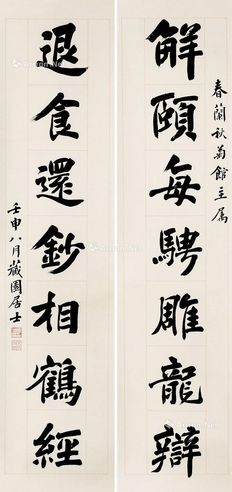 春蘭秋菊館主属
解頤每騁雕龍辯
退食還鈔相鶴經
壬申八月藏園居士